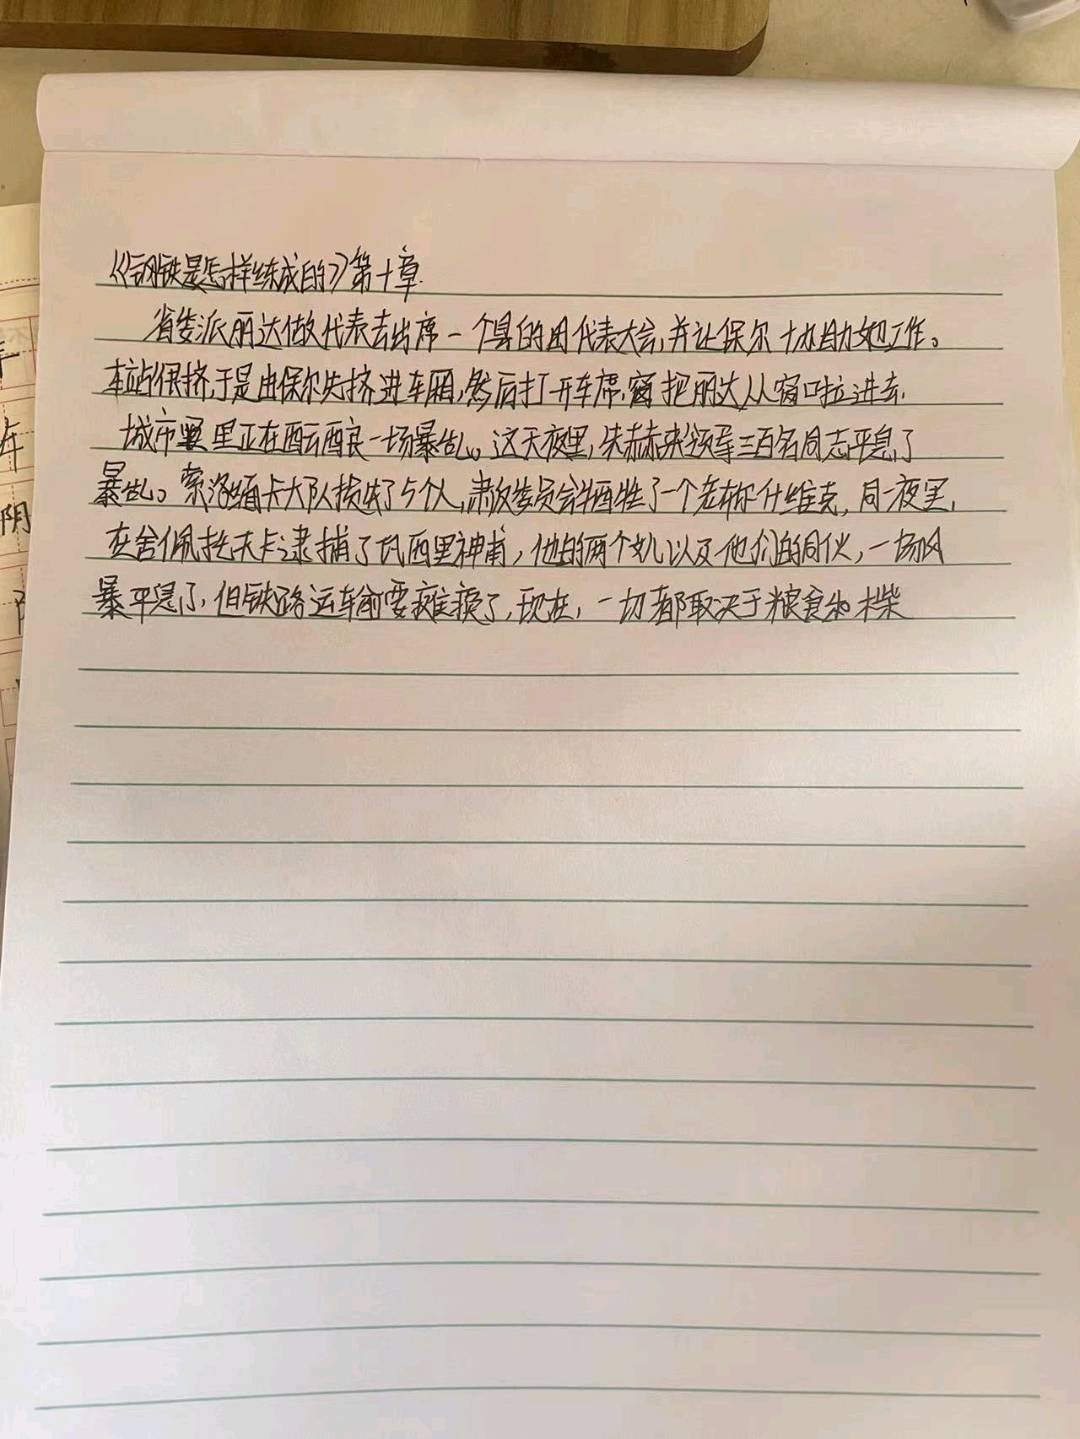 《钢铁是怎样练成的》第十章.
省委派丽达做代表去出席一个县的团代表大会,并让保尔协助她工作。
车站很挤,于是由保尔先挤进车厢,然后打开车席,窗把丽达从窗口拉进去.
城市里正在酝酿一场暴乱。这天夜里,朱赫来领导三百名同志平息了
暴乱。索洛缅卡大队损失了5个人,肃反委员会牺牲了一个老布尔什维克,同一夜里,
在舍佩托夫卡逮捕了瓦西里神甫,他的两个女儿以及他们的同伙,一场风
暴平息了,但铁路运车前要瘫痪了,现在,一切都取决于粮食和木柴
年
阴